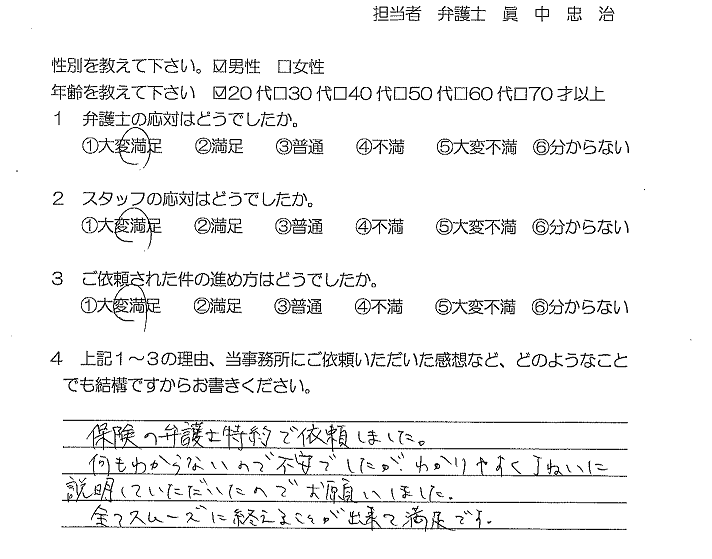 担当者 弁護士 眞 中 忠 治
性別を教えて下さい。☑男性 □女性
年齢を教えて下さい ☑20代□30代□40代□50代□60代□70才以上
1 弁護士の応対はどうでしたか。
①大変満足 ②満足 ③普通 ④不満 ⑤大変不満 ⑥分からない
2 スタッフの応対はどうでしたか。
①大変満足 ②満足 ③普通 ④不満 ⑤大変不満 ⑥分からない
3 ご依頼された件の進め方はどうでしたか。
①大変満足 ②満足 ③普通 ④不満 ⑤大変不満 ⑥分からない
4 上記1～3の理由、当事務所にご依頼いただいた感想など、どのようなこと
でも結構ですからお書きください。
保険の弁護士特約で依頼しました。
何もわからないので不安でしたが、わかりやすく丁ねいに
説明していただいたのでお願いしました。
全てスムーズに終えることが出来て満足です。